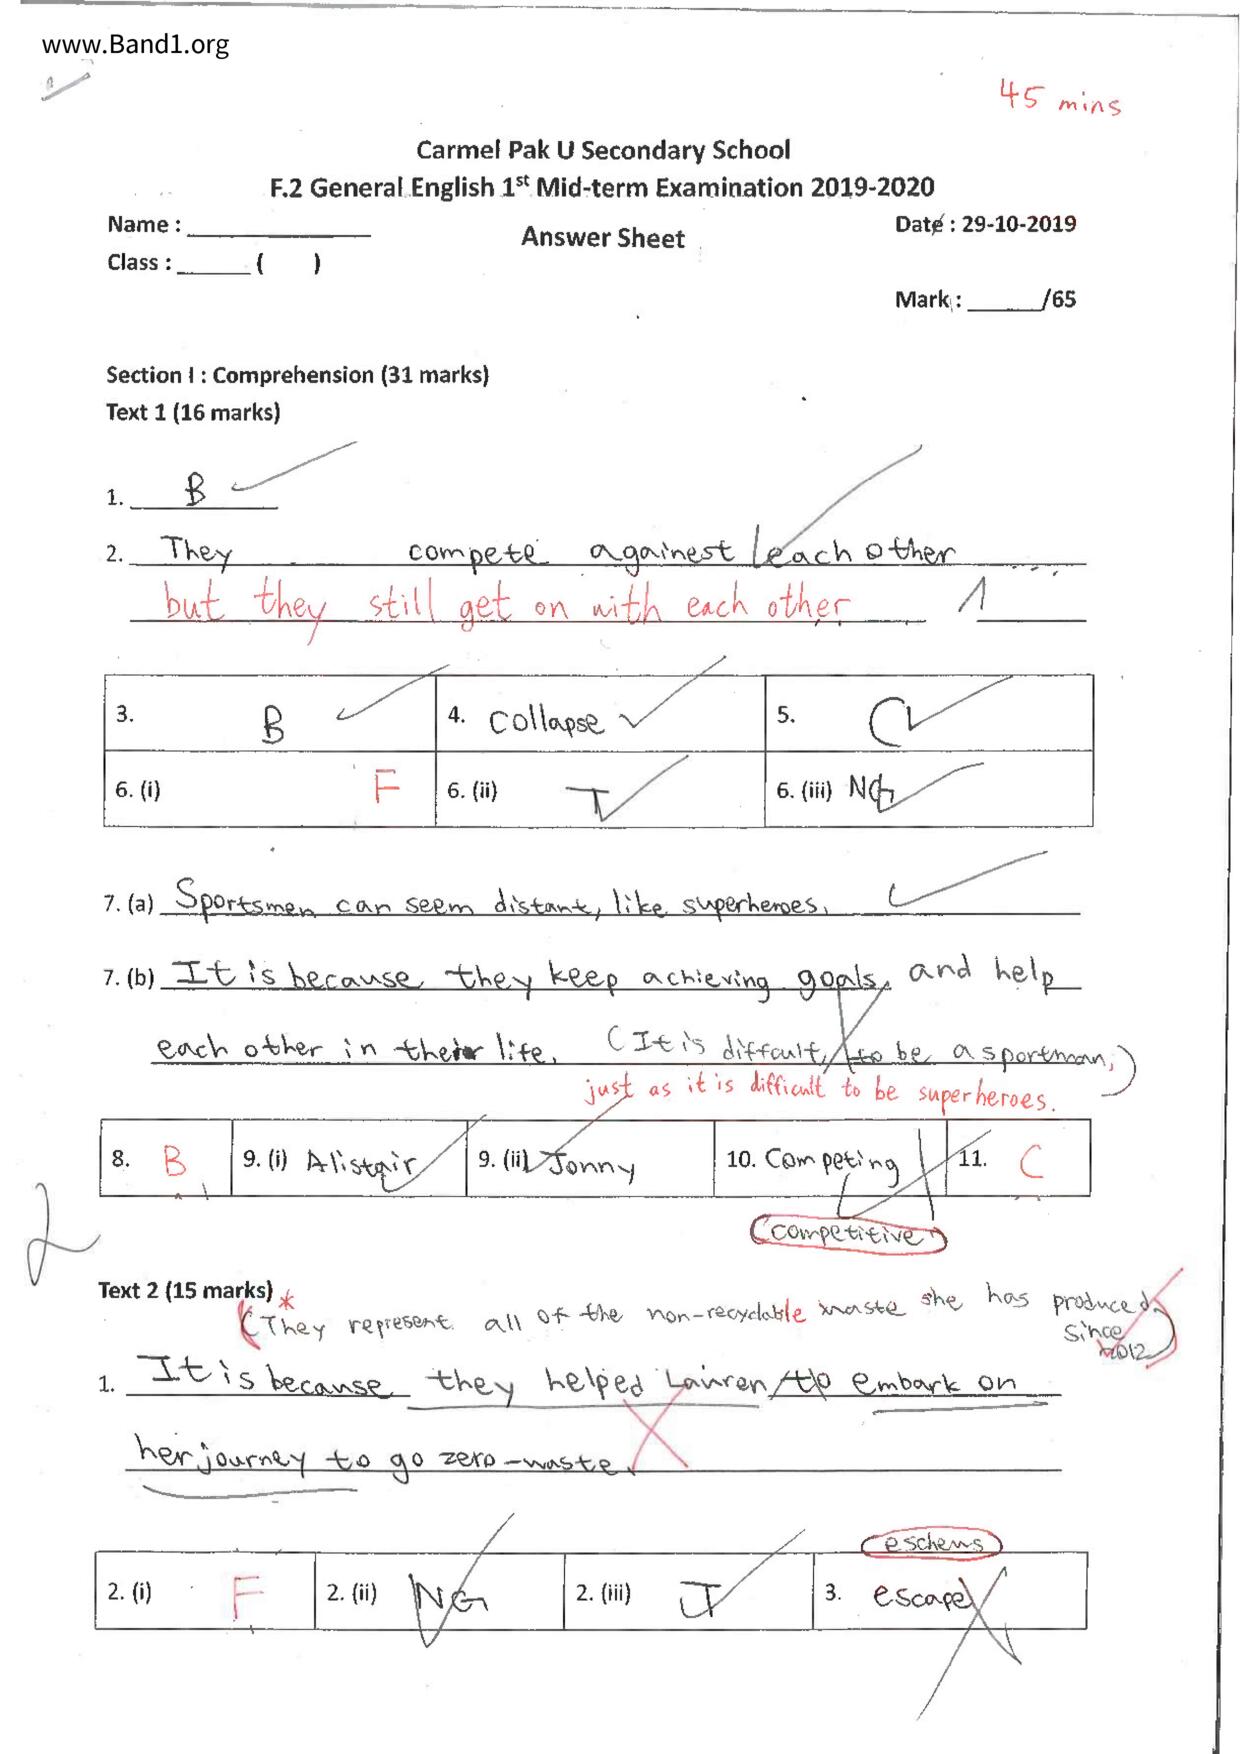 www.Band1.org
45 mins
Carmel Pak U Secondary School
F.2 General English 1st Mid-term Examination 2019-2020
Name : ______________ Answer Sheet Date : 29-10-2019
Class : ______ ( )
Mark : ______/65
Section I : Comprehension (31 marks)
Text 1 (16 marks)
1. B
2. They compete againest each other
but they still get on with each other 1
3. B 4. collapse 5. C
6. (i) F 6. (ii) T 6. (iii) NG
7. (a) Sportsmen can seem distant, like superheroes.
7. (b) It is because they keep achieving goals, and help
each other in their life. (It is diffcult to be a sportman,)
just as it is difficult to be superheroes.
8. B 9. (i) Alistair 9. (ii) Jonny 10. Competing 11. C
(competitive)
2
Text 2 (15 marks) *
(They represent all of the non-recyclable waste she has produced
since
2012)
1. It is because they helped Lauren to embark on
her journey to go zero-waste.
eschews
2. (i) F 2. (ii) NG 2. (iii) T 3. escape